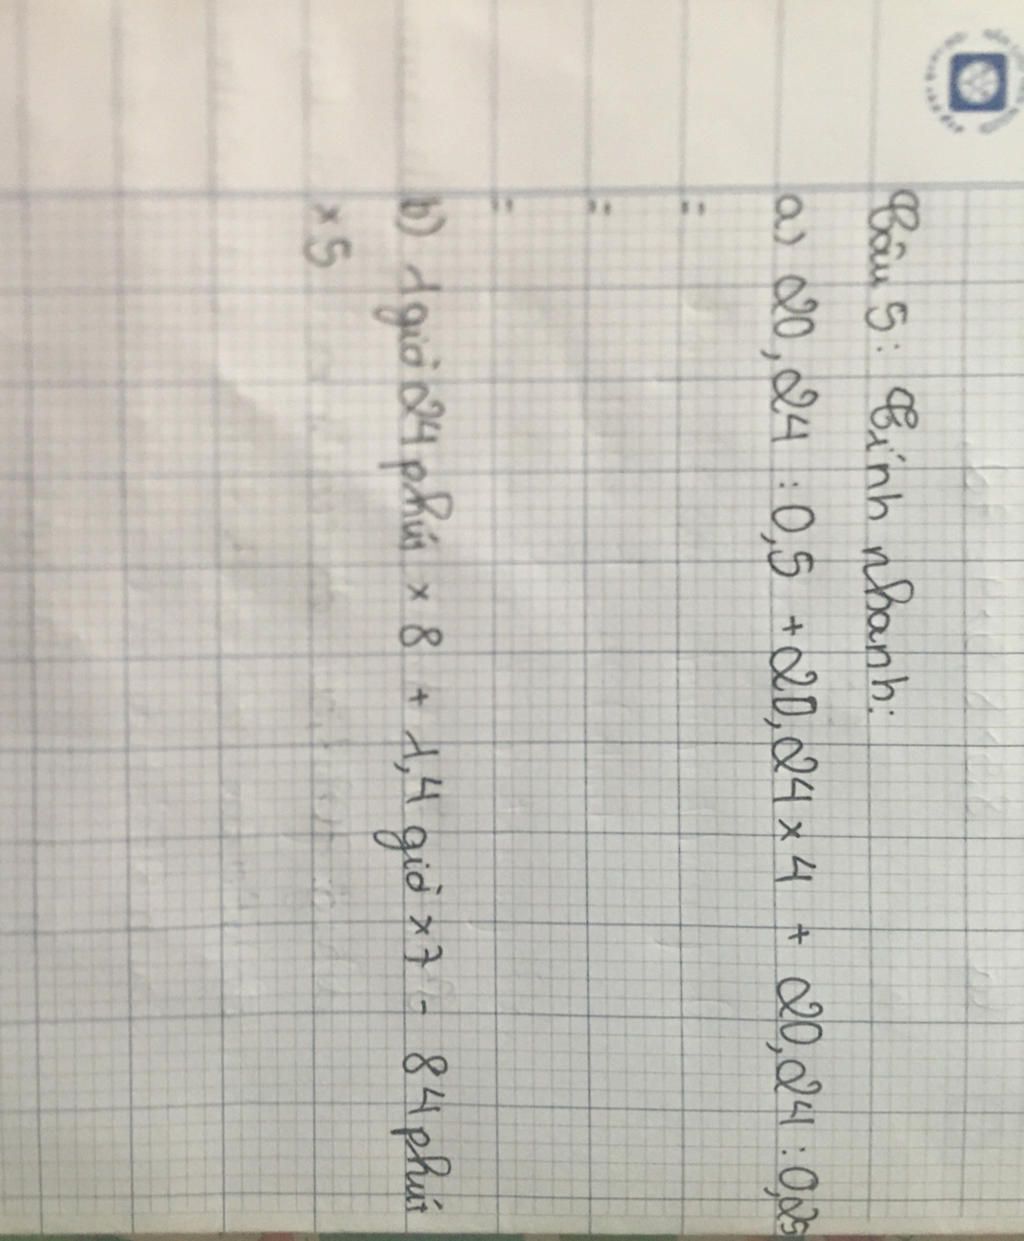 Câu 5: Tính nhanh:
a) 20,24 : 0,5 + 20,24 x 4 + 20,24 : 0,25
=
=
=
b) 1 giờ 24 phút x 8 + 1,4 giờ x 7 - 84 phút
x 5